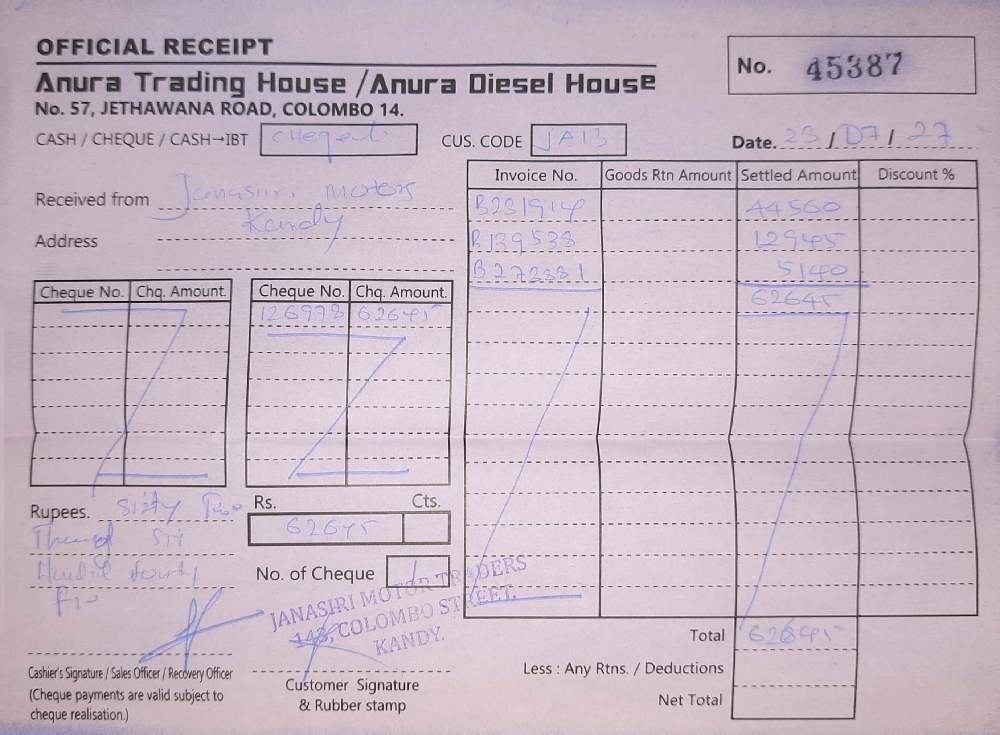 OFFICIAL RECEIPT
Anura Trading House /Anura Diesel House
No. 57, JETHAWANA ROAD, COLOMBO 14.
No. 45387
CASH / CHEQUE / CASH→IBT
CUS. CODE JA13
Date. 23 / 07 / 27
Received from Janasiri Motors
Kandy
Address
Cheque No. Chq. Amount.
Cheque No. Chq. Amount.
126978 62645
Invoice No. Goods Rtn Amount Settled Amount Discount %
B231914 44560
B139538 12945
B272381 5140
62645
Rupees. Sixty Two
Six
Fourty
Rs. Cts.
62645
No. of Cheque 1
JANASIRI MOTOR TRADERS
143, COLOMBO STREET,
KANDY.
Cashier's Signature / Sales Officer / Recovery Officer
(Cheque payments are valid subject to
cheque realisation.)
Customer Signature
& Rubber stamp
Total 62645
Less : Any Rtns. / Deductions
Net Total